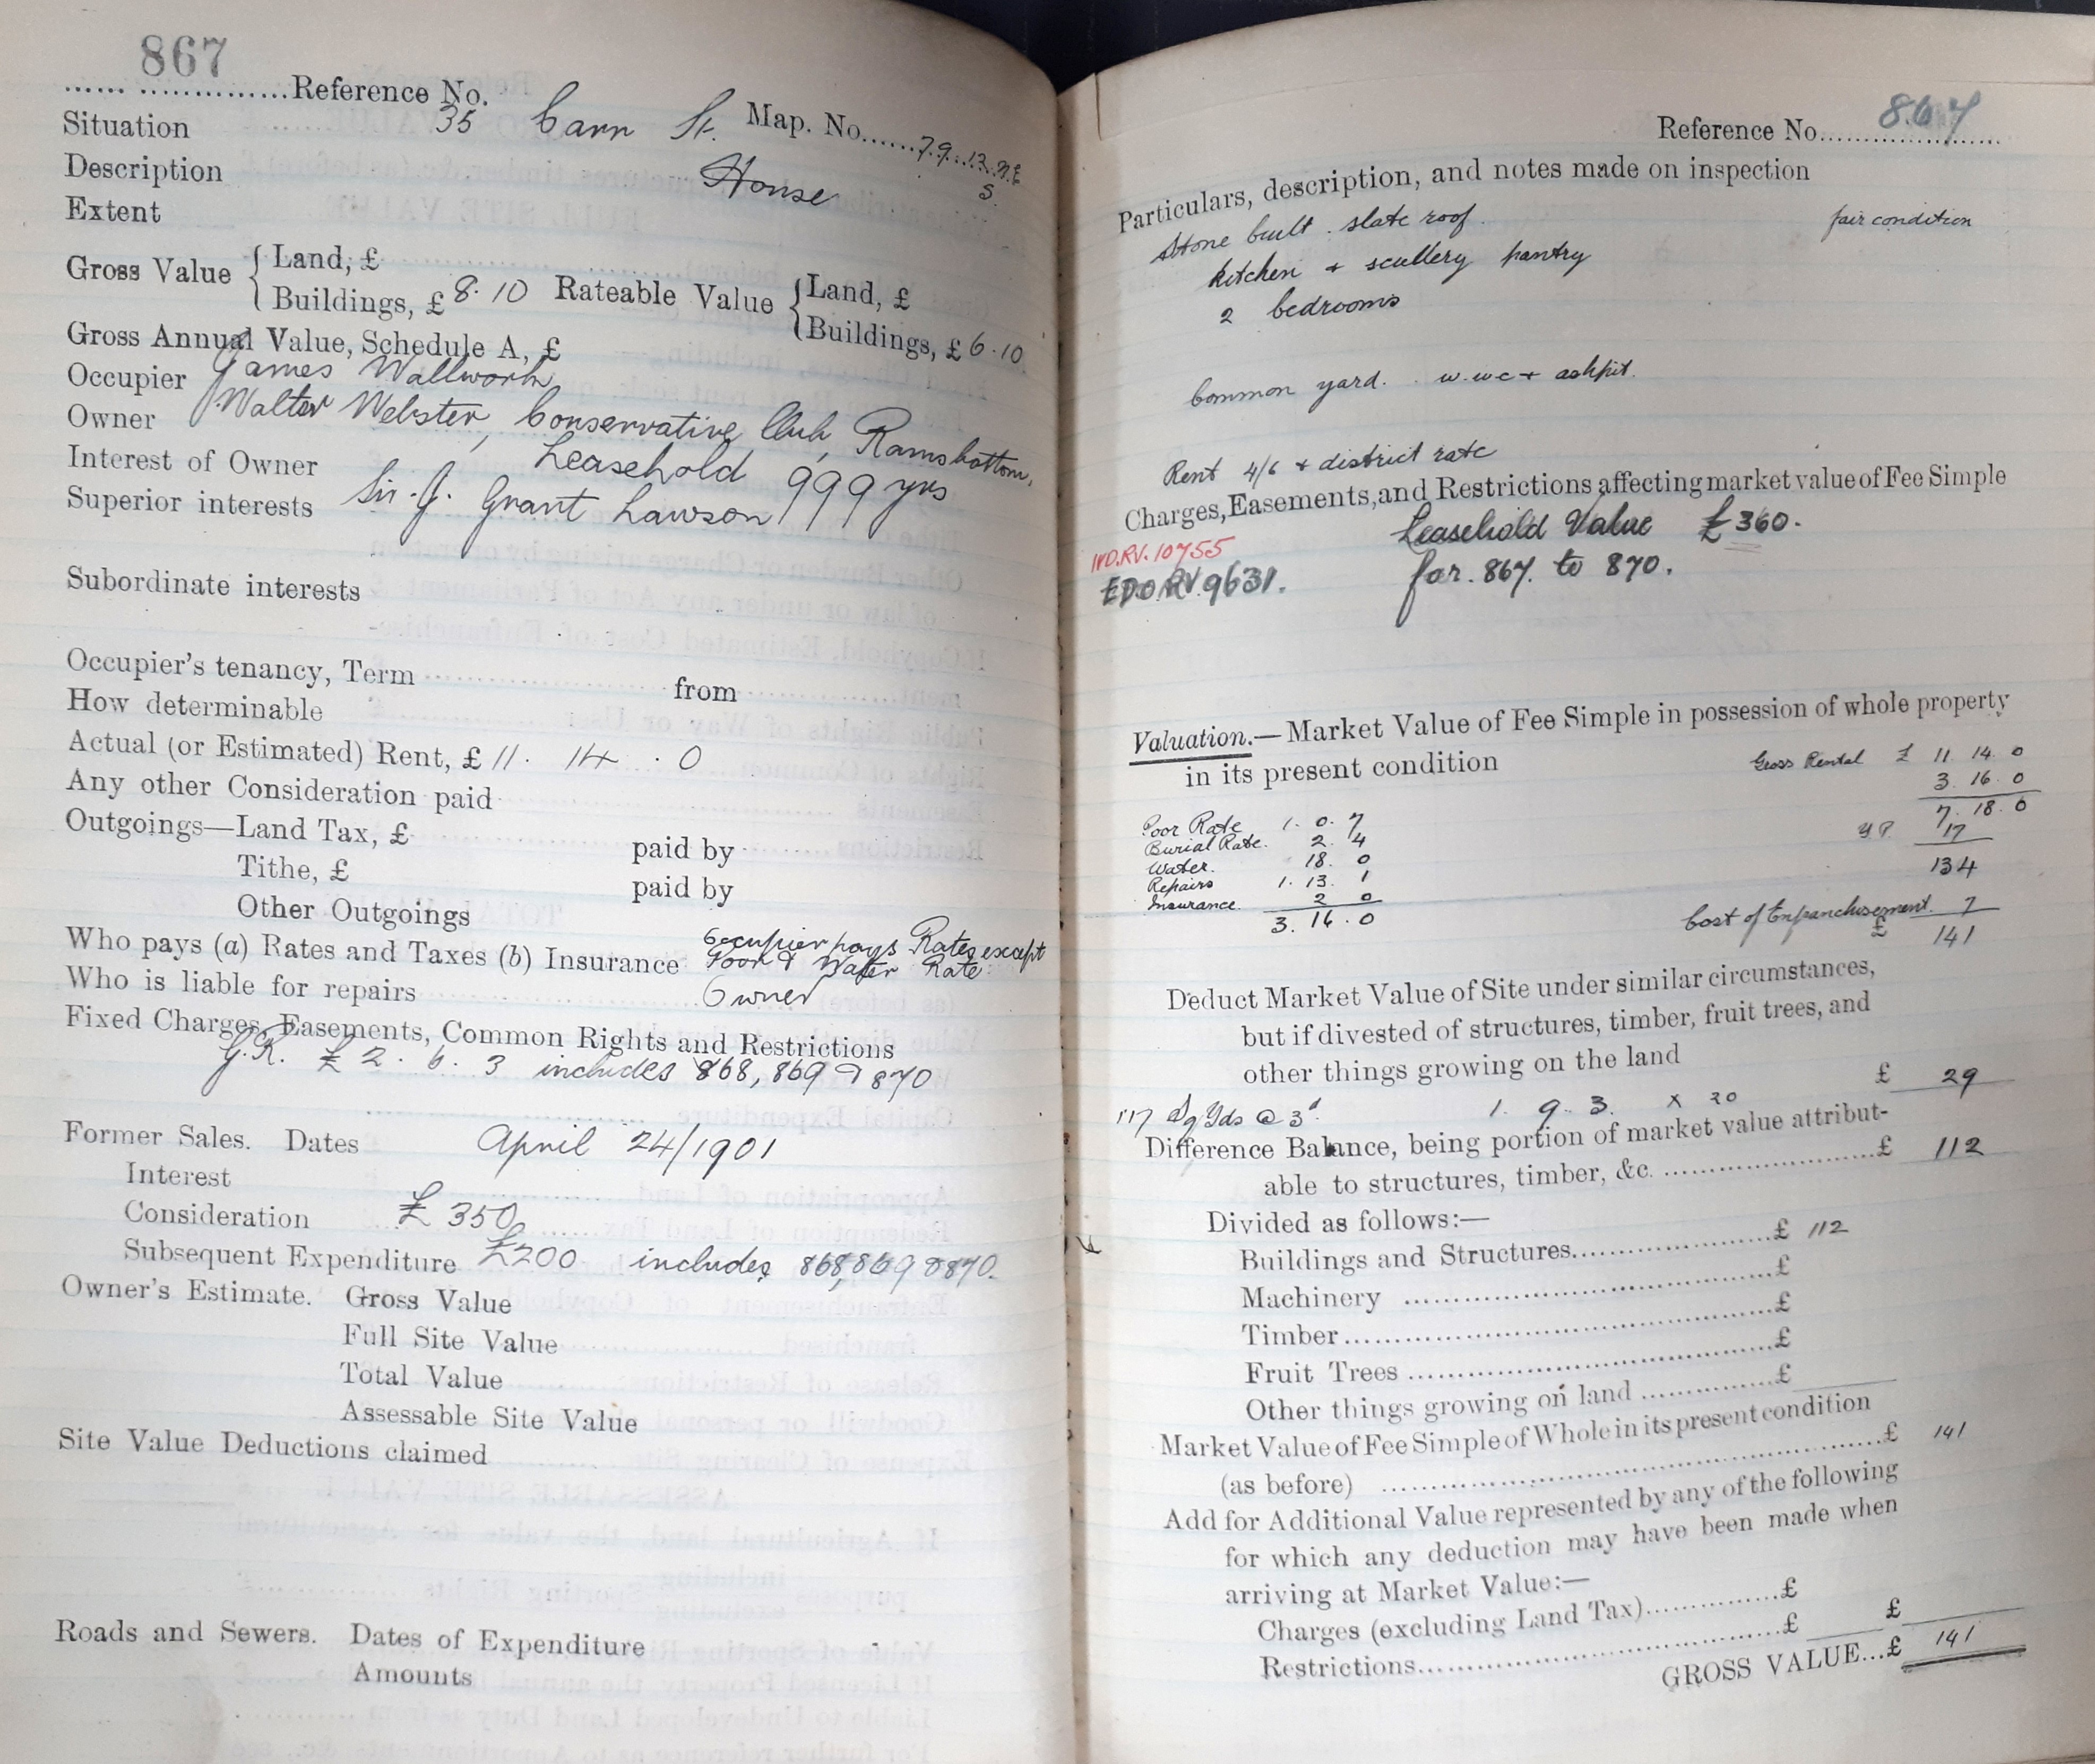 867
...... ..............Reference No.
Situation 35 Carr St. Map. No......79.13.N.E
S.
Description House
Extent
Gross Value { Land, £
Buildings, £ 8.10 Rateable Value { Land, £
Buildings, £ 6.10
Gross Annual Value, Schedule A, £
Occupier James Wallwork
Owner Walter Webster, Conservative Club, Ramsbottom.
Interest of Owner Leasehold 999 yrs
Superior interests Sir. J. Grant Lawson
Subordinate interests
Occupier's tenancy, Term from
How determinable
Actual (or Estimated) Rent, £ 11. 14. 0
Any other Consideration paid
Outgoings—Land Tax, £ paid by
Tithe, £ paid by
Other Outgoings
Who pays (a) Rates and Taxes (b) Insurance Occupier pays Rates except
Poor & Water Rate
Who is liable for repairs Owner
Fixed Charges, Easements, Common Rights and Restrictions
G.R. £2. 6. 3 includes 868, 869 & 870
Former Sales. Dates April 24/1901
Interest
Consideration £350
Subsequent Expenditure £200 includes 868, 869 & 870.
Owner's Estimate. Gross Value
Full Site Value
Total Value
Assessable Site Value
Site Value Deductions claimed
Roads and Sewers. Dates of Expenditure
Amounts
Reference No. 867
Particulars, description, and notes made on inspection
Stone built. slate roof. fair condition
kitchen + scullery pantry
2 bedrooms
Common yard. w.wc + ashpit.
Rent 4/6 + district rate
Charges, Easements, and Restrictions affecting market value of Fee Simple
Leasehold Value £360.
IVD.RV.10755
EDO.RV.9631. for. 867. to 870.
Valuation.—Market Value of Fee Simple in possession of whole property
in its present condition
Gross Rental £ 11 14. 0
3. 16. 0
7. 18. 0
Y.P. 17
134
Cost of Enfranchisement. 7
£ 141
Poor Rate 1. 0. 7
Burial Rate. 2. 4
Water. 18. 0
Repairs 1. 13. 1
Insurance. 2 0
3. 16. 0
Deduct Market Value of Site under similar circumstances,
but if divested of structures, timber, fruit trees, and
other things growing on the land £ 29
117 Sq Yds @ 3d. 1. 9. 3. x 20
Difference Balance, being portion of market value attribut-
able to structures, timber, &c. ........................£ 112
Divided as follows:—
Buildings and Structures........................£ 112
Machinery ........................£
Timber........................£
Fruit Trees ........................£
Other things growing on land ................£
Market Value of Fee Simple of Whole in its present condition
(as before) ........................£ 141
Add for Additional Value represented by any of the following
for which any deduction may have been made when
arriving at Market Value:—
Charges (excluding Land Tax)................£
Restrictions........................£ £
GROSS VALUE...£ 141